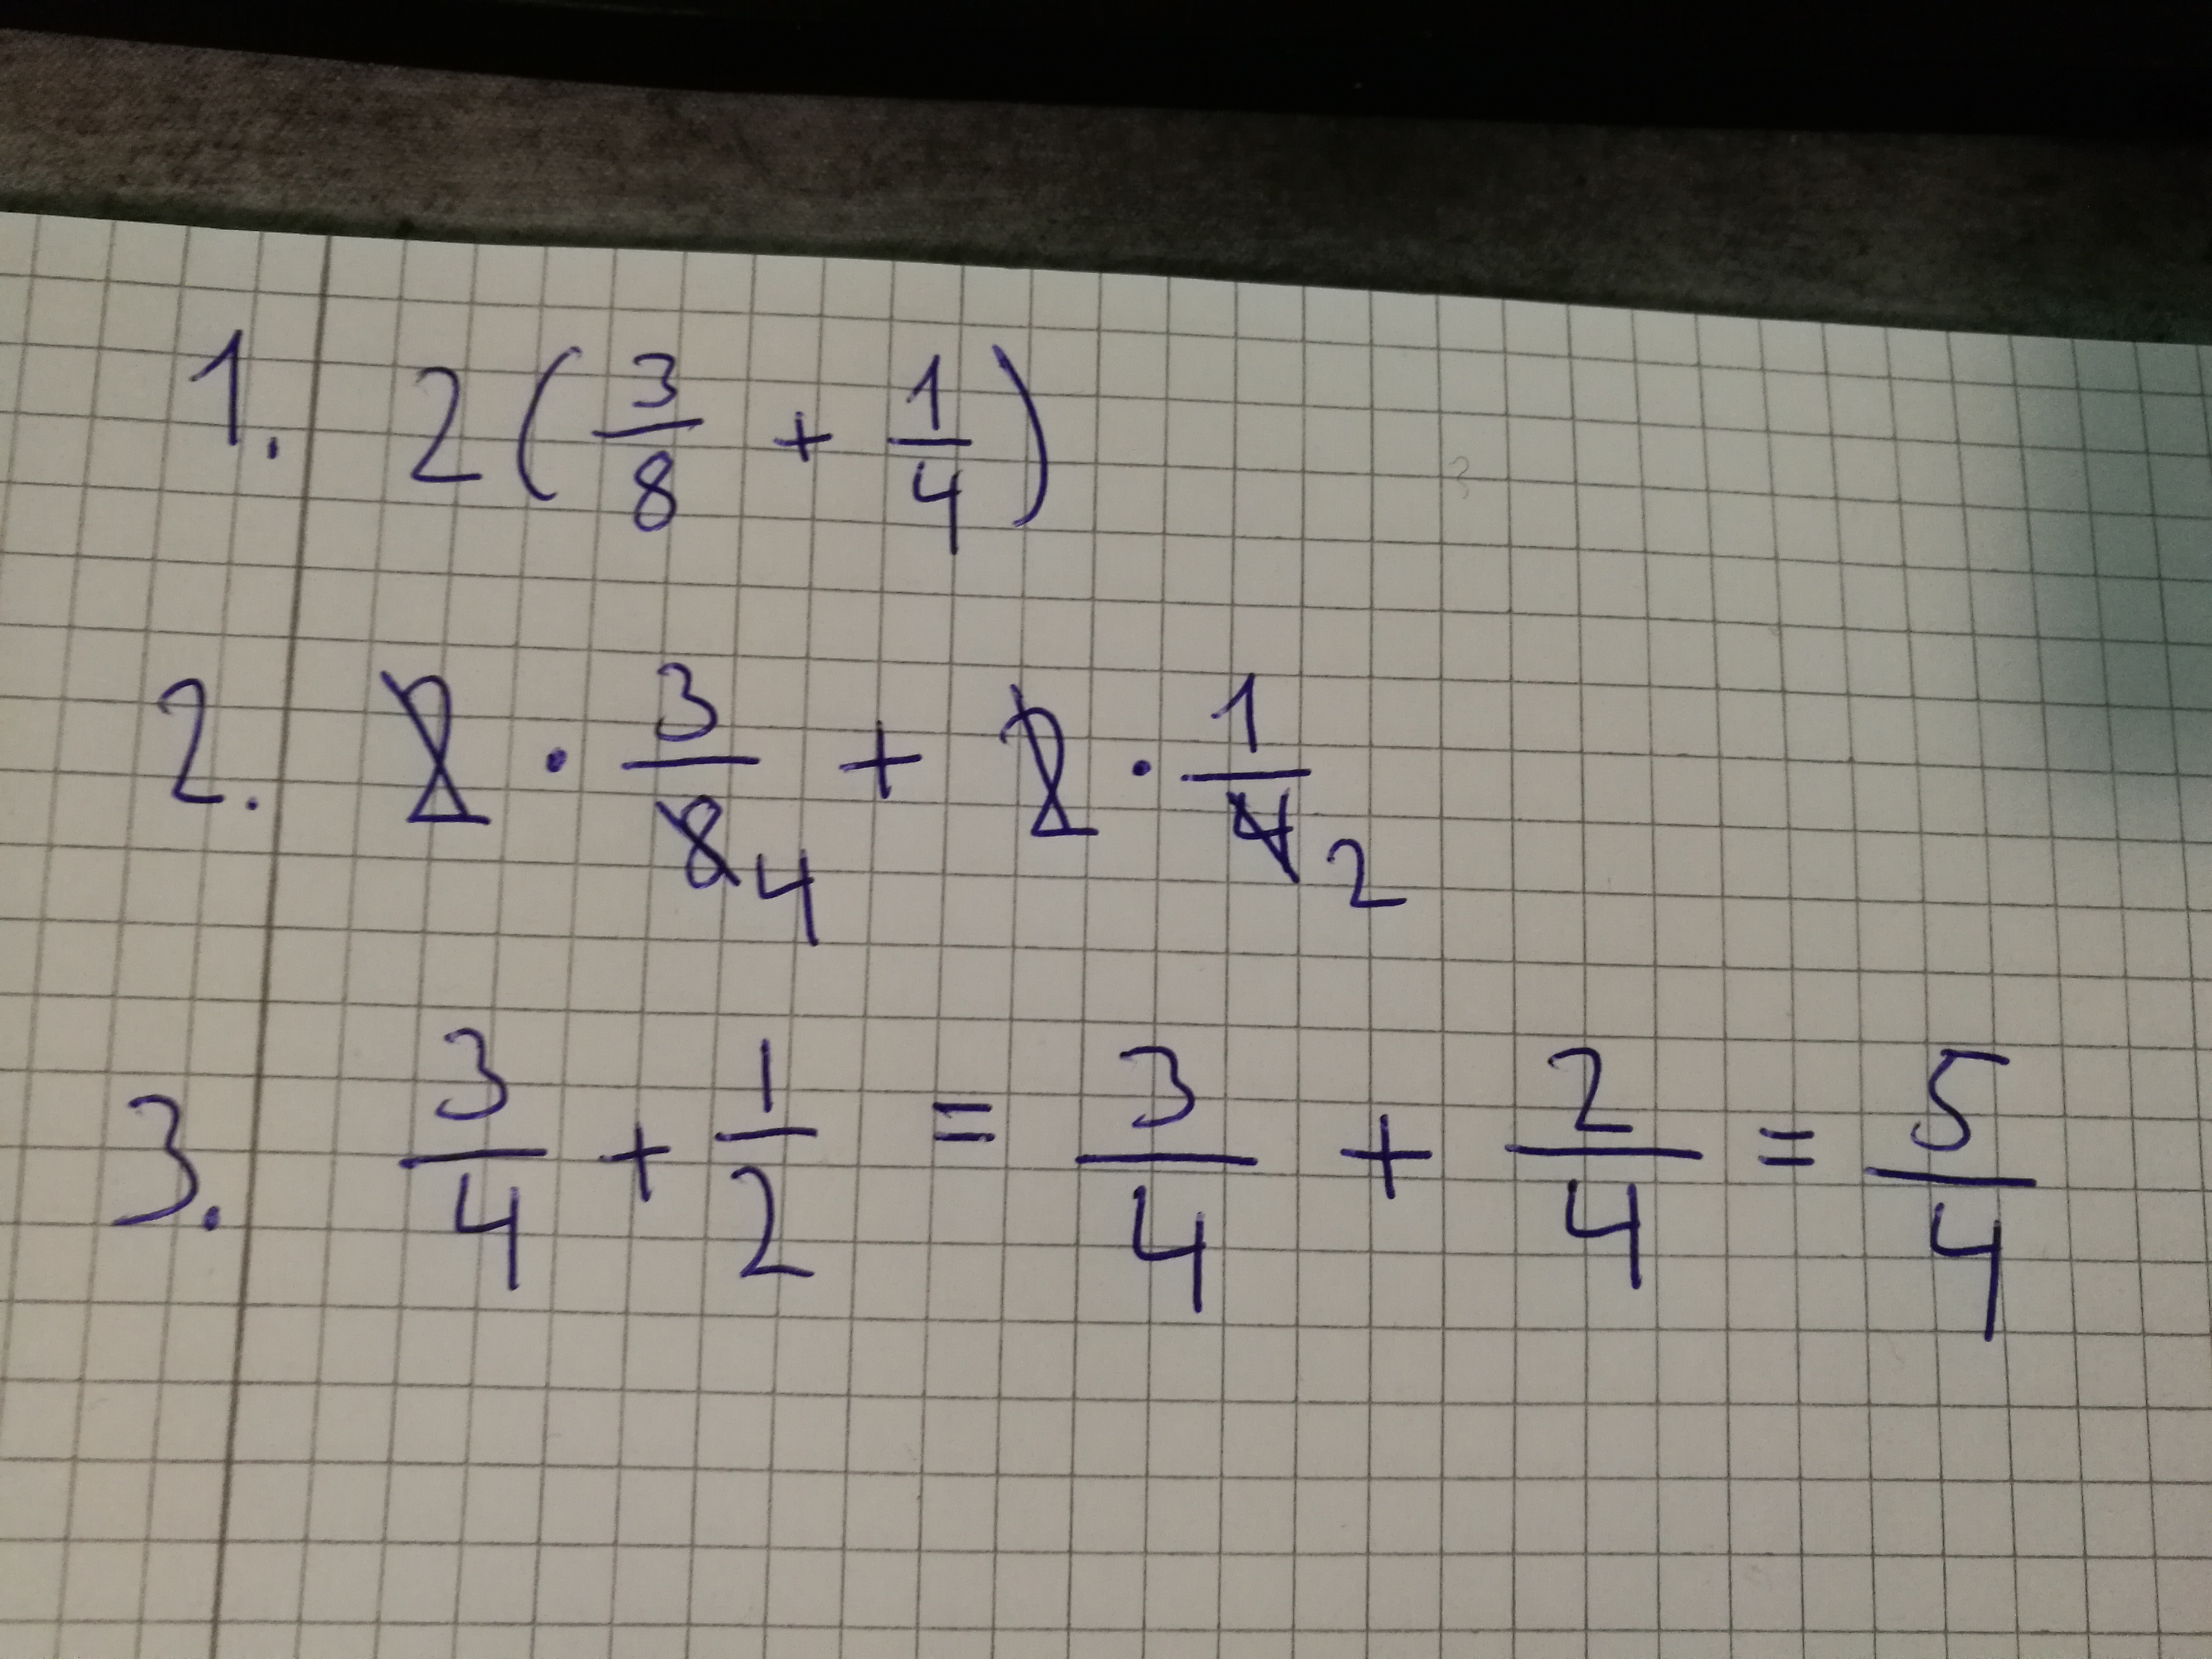 1. 2(3/8 + 1/4)
2. 2 · 3/8 4 + 2 · 1/4 2
3. 3/4 + 1/2 = 3/4 + 2/4 = 5/4